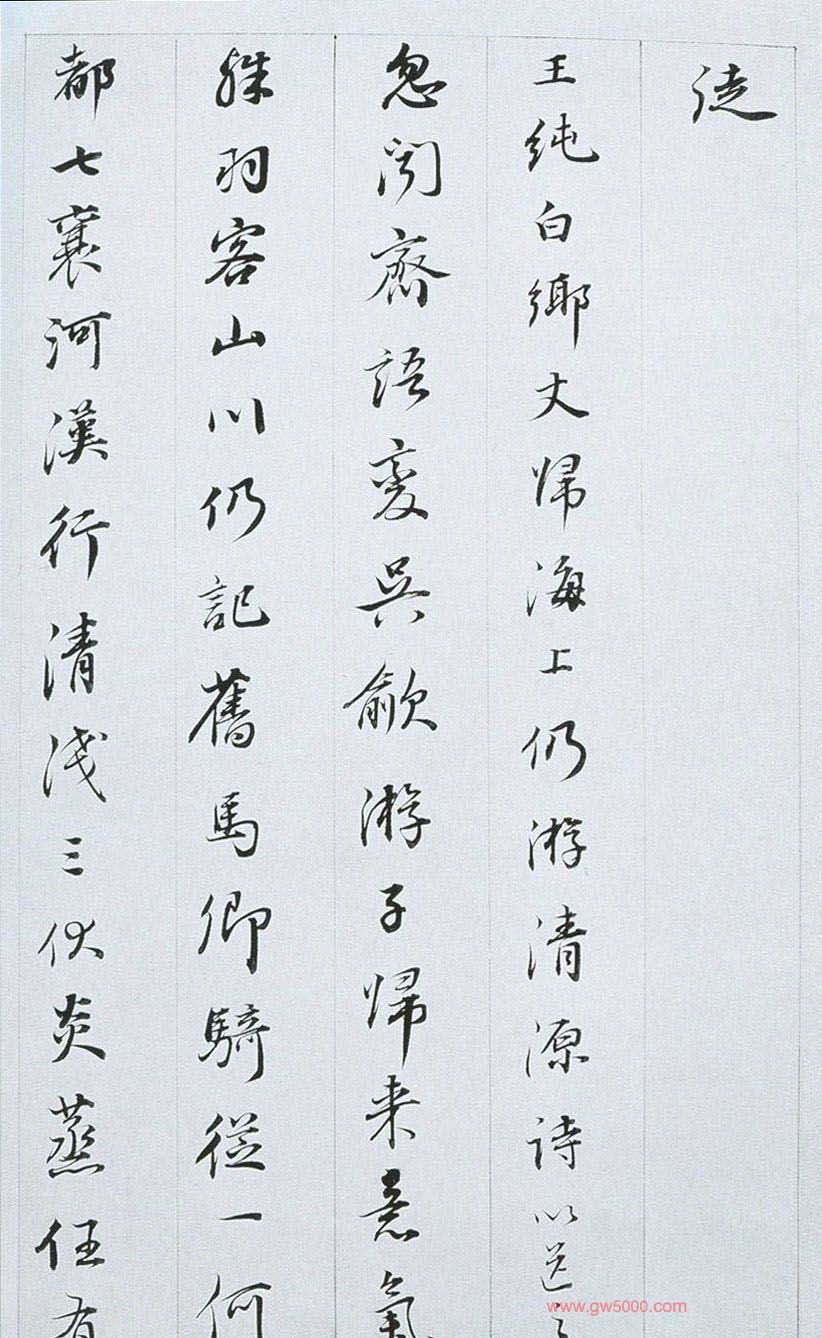 徒
王纯白鄉丈帰海上仍游清源詩以送之
忽闻齋語变吴歈游子帰来意氣
殊羽客山川仍記舊馬卿騎從一何
都七襄河漢行清浅三伏炎蒸任有
www.gw5000.com